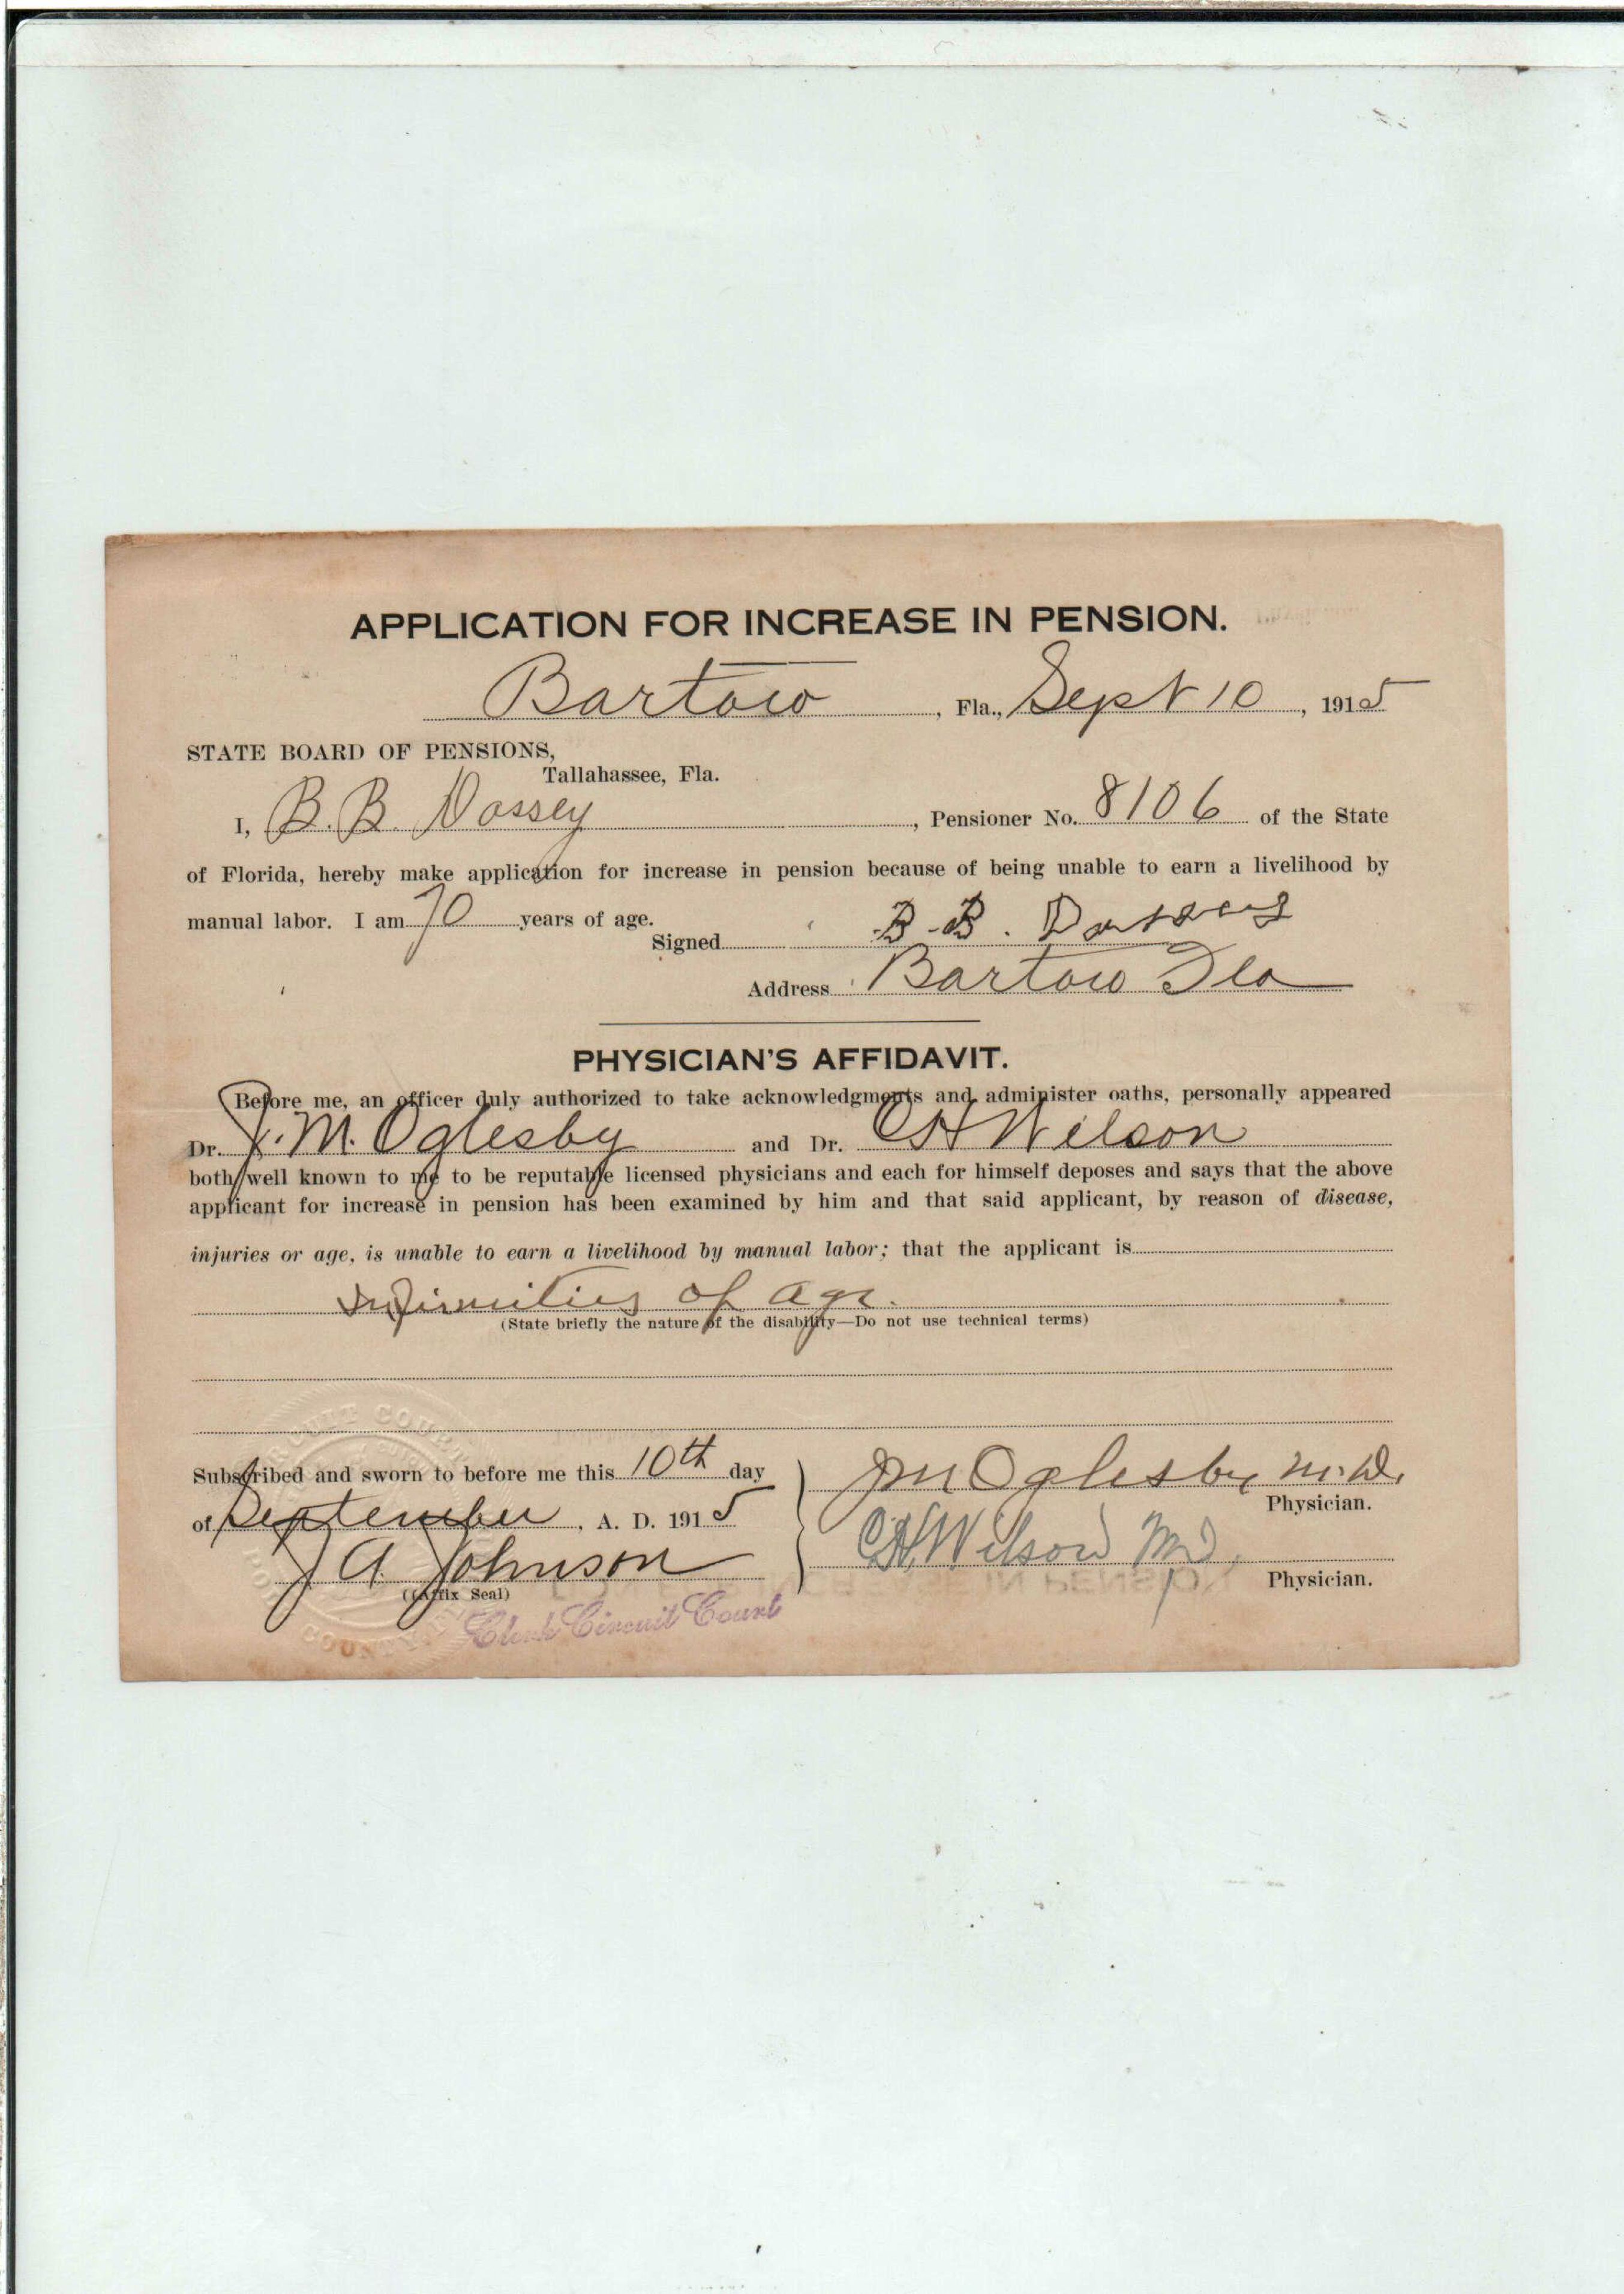 APPLICATION FOR INCREASE IN PENSION.
Bartow, Fla., Sept 10, 1915
STATE BOARD OF PENSIONS,
Tallahassee, Fla.
I, B. B. Dossey, Pensioner No. 8106 of the State
of Florida, hereby make application for increase in pension because of being unable to earn a livelihood by
manual labor. I am 70 years of age.
Signed B. B.
Address Bartow Fla
PHYSICIAN'S AFFIDAVIT.
Before me, an officer duly authorized to take acknowledgments and administer oaths, personally appeared
Dr. J. M. Oglesby and Dr. C H Wilson
both well known to me to be reputable licensed physicians and each for himself deposes and says that the above
applicant for increase in pension has been examined by him and that said applicant, by reason of disease,
injuries or age, is unable to earn a livelihood by manual labor; that the applicant is
Infirmities of age.
(State briefly the nature of the disability—Do not use technical terms)
Subscribed and sworn to before me this 10th day
of September, A. D. 1915
J A Johnson
(Affix Seal)
Clerk Circuit Court
J M Oglesby M.D.
Physician.
C H Wilson MD.
Physician.
CIRCUIT COURT
COUNTY